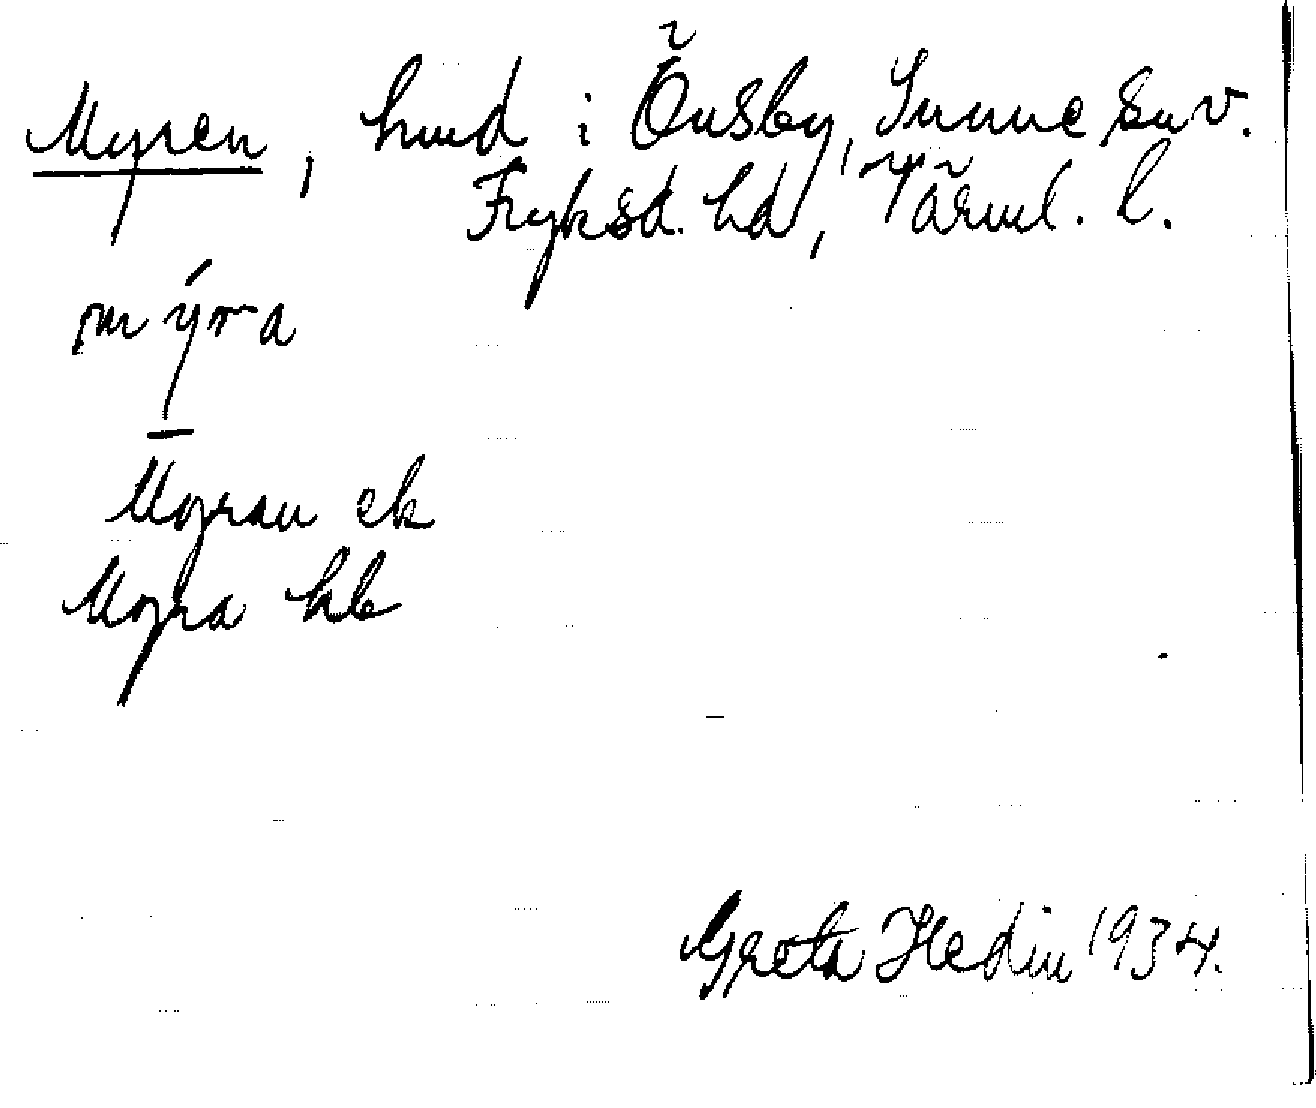 Myren, hmd i Önsby, Sunne sn v.
Fryksd. hd, Värml. l.
mýra
Myran ek
Myra hb
Greta Hedin 1934.